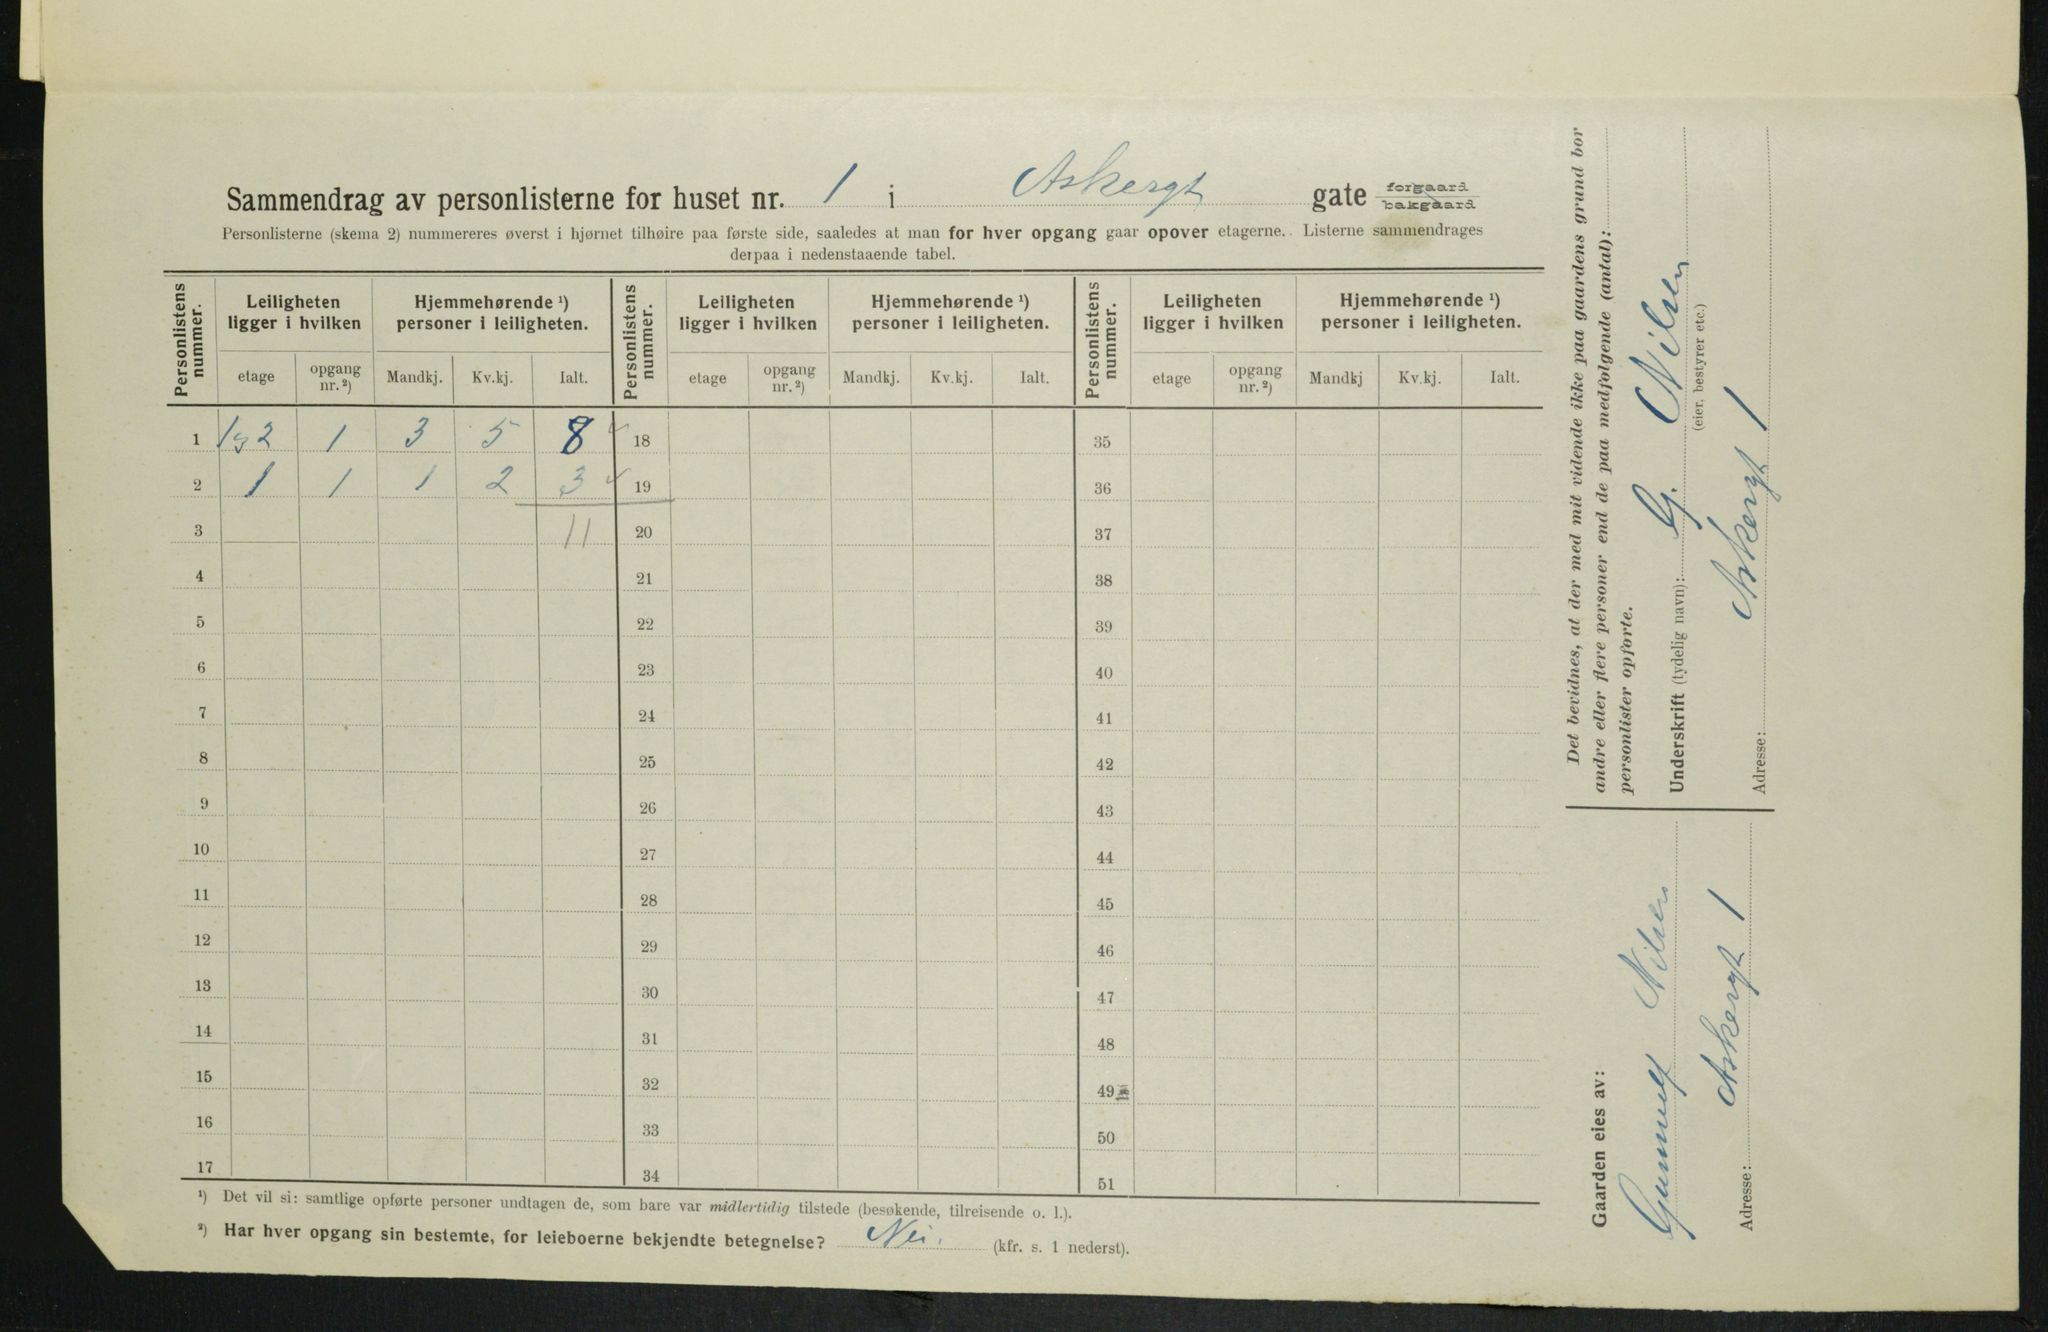 Sammendrag av personlisterne for huset nr. 1 i Askergt gate forgaard bakgaard
Personlisterne (skema 2) nummereres øverst i hjørnet tilhøire paa første side, saaledes at man for hver opgang gaar opover etagerne. Listerne sammendrages
derpaa i nedenstaaende tabel.
Personlistens nummer. Leiligheten ligger i hvilken Hjemmehørende ¹) personer i leiligheten. Personlistens nummer. Leiligheten ligger i hvilken Hjemmehørende ¹) personer i leiligheten. Personlistens nummer. Leiligheten ligger i hvilken Hjemmehørende ¹) personer i leiligheten.
etage opgang nr. ²) Mandkj. Kv.kj. Ialt. etage opgang nr. ²) Mandkj. Kv.kj. Ialt. etage opgang nr. ²) Mandkj Kv.kj. Ialt.
1 1 og 2 1 3 5 8 18 35
2 1 1 1 2 3 19 36
3 11 20 37
4 21 38
5 22 39
6 23 40
7 24 41
8 25 42
9 26 43
10 27 44
11 28 45
12 29 46
13 30 47
14 31 48
15 32 49
16 33 50
17 34 51
¹) Det vil si: samtlige opførte personer undtagen de, som bare var midlertidig tilstede (besøkende, tilreisende o. l.).
²) Har hver opgang sin bestemte, for leieboerne bekjendte betegnelse? Nei. (kfr. s. 1 nederst).
Det bevidnes, at der med mit vidende ikke paa gaardens grund bor
andre eller flere personer end de paa medfølgende (antal):
personlister opførte.
Underskrift (tydelig navn): G. Nilsen
(eier, bestyrer etc.)
Adresse: Askergt 1
Gaarden eies av:
Nilsen
Adresse: Askergt 1